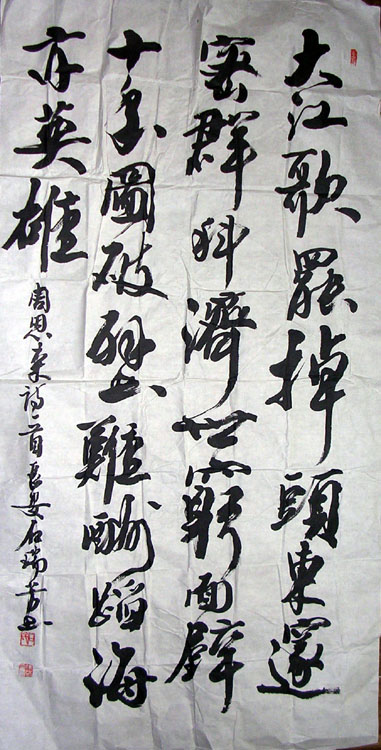 大江歌罷掉頭東邃
密群科濟世窮面壁
十年圖破壁難酬蹈海
亦英雄
周恩来詩一首長安石瑞芳书